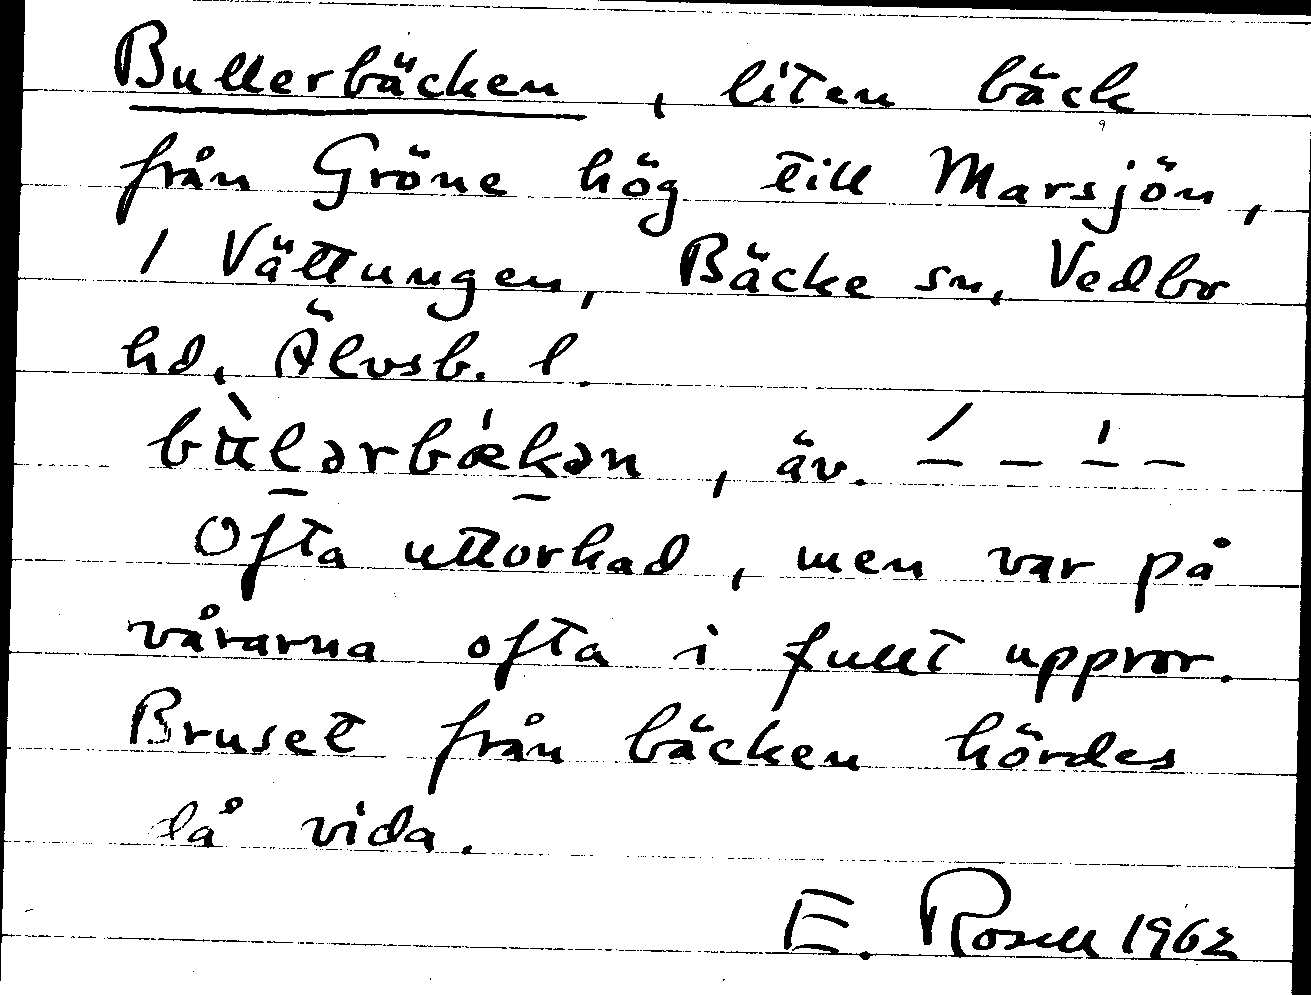 Bullerbäcken, liten bäck
från Gröne hög till Marsjön,
/ Vättungen, Bäcke sn, Vedbo
hd, Älvsb. l.
bùlərbækən, äv. – – – –
Ofta uttorkad, men var på
vårarna ofta i fullt uppror.
Bruset från bäcken hördes
då vida.
E. Rosell 1962